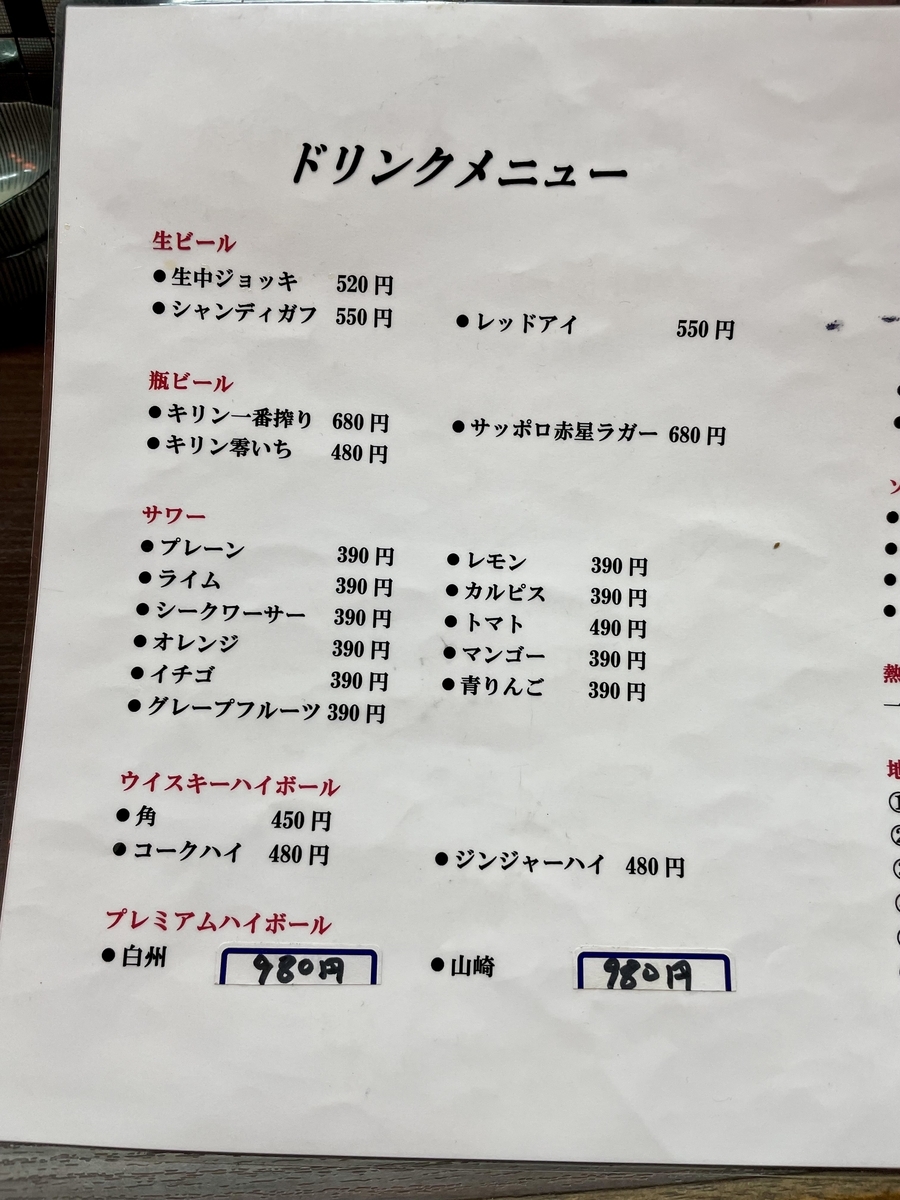 ドリンクメニュー
生ビール
●生中ジョッキ 520円
●シャンディガフ 550円 ●レッドアイ 550円
瓶ビール
●キリン一番搾り 680円 ●サッポロ赤星ラガー 680円
●キリン零いち 480円
サワー
●プレーン 390円 ●レモン 390円
●ライム 390円 ●カルピス 390円
●シークワーサー 390円 ●トマト 490円
●オレンジ 390円 ●マンゴー 390円
●イチゴ 390円 ●青りんご 390円
●グレープフルーツ 390円
ウイスキーハイボール
●角 450円
●コークハイ 480円 ●ジンジャーハイ 480円
プレミアムハイボール
●白州 980円 ●山崎 980円